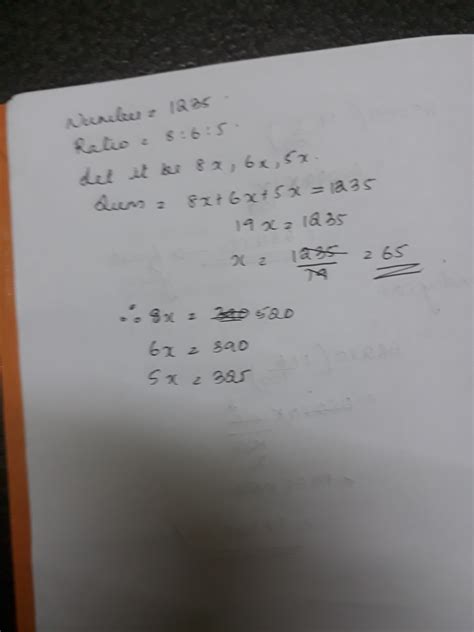 Number = 1235.
Ratio = 8:6:5.
Let it be 8x, 6x, 5x.
Sum = 8x+6x+5x = 1235
19x = 1235
x = 1235/19 = 65
∴ 8x = 390 520
6x = 390
5x = 325